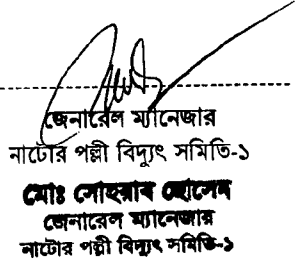 জেনারেল ম্যানেজার
নাটোর পল্লী বিদ্যুৎ সমিতি-১
মোঃ সোহরাব হোসেন
জেনারেল ম্যানেজার
নাটোর পল্লী বিদ্যুৎ সমিতি-১